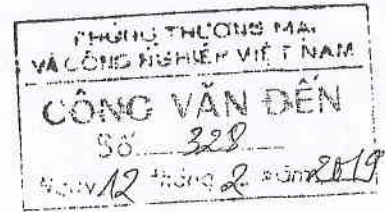 PHÒNG THƯƠNG MẠI
VÀ CÔNG NGHIỆP VIỆT NAM
CÔNG VĂN ĐẾN
Số 328
Ngày 12 tháng 2 năm 2019